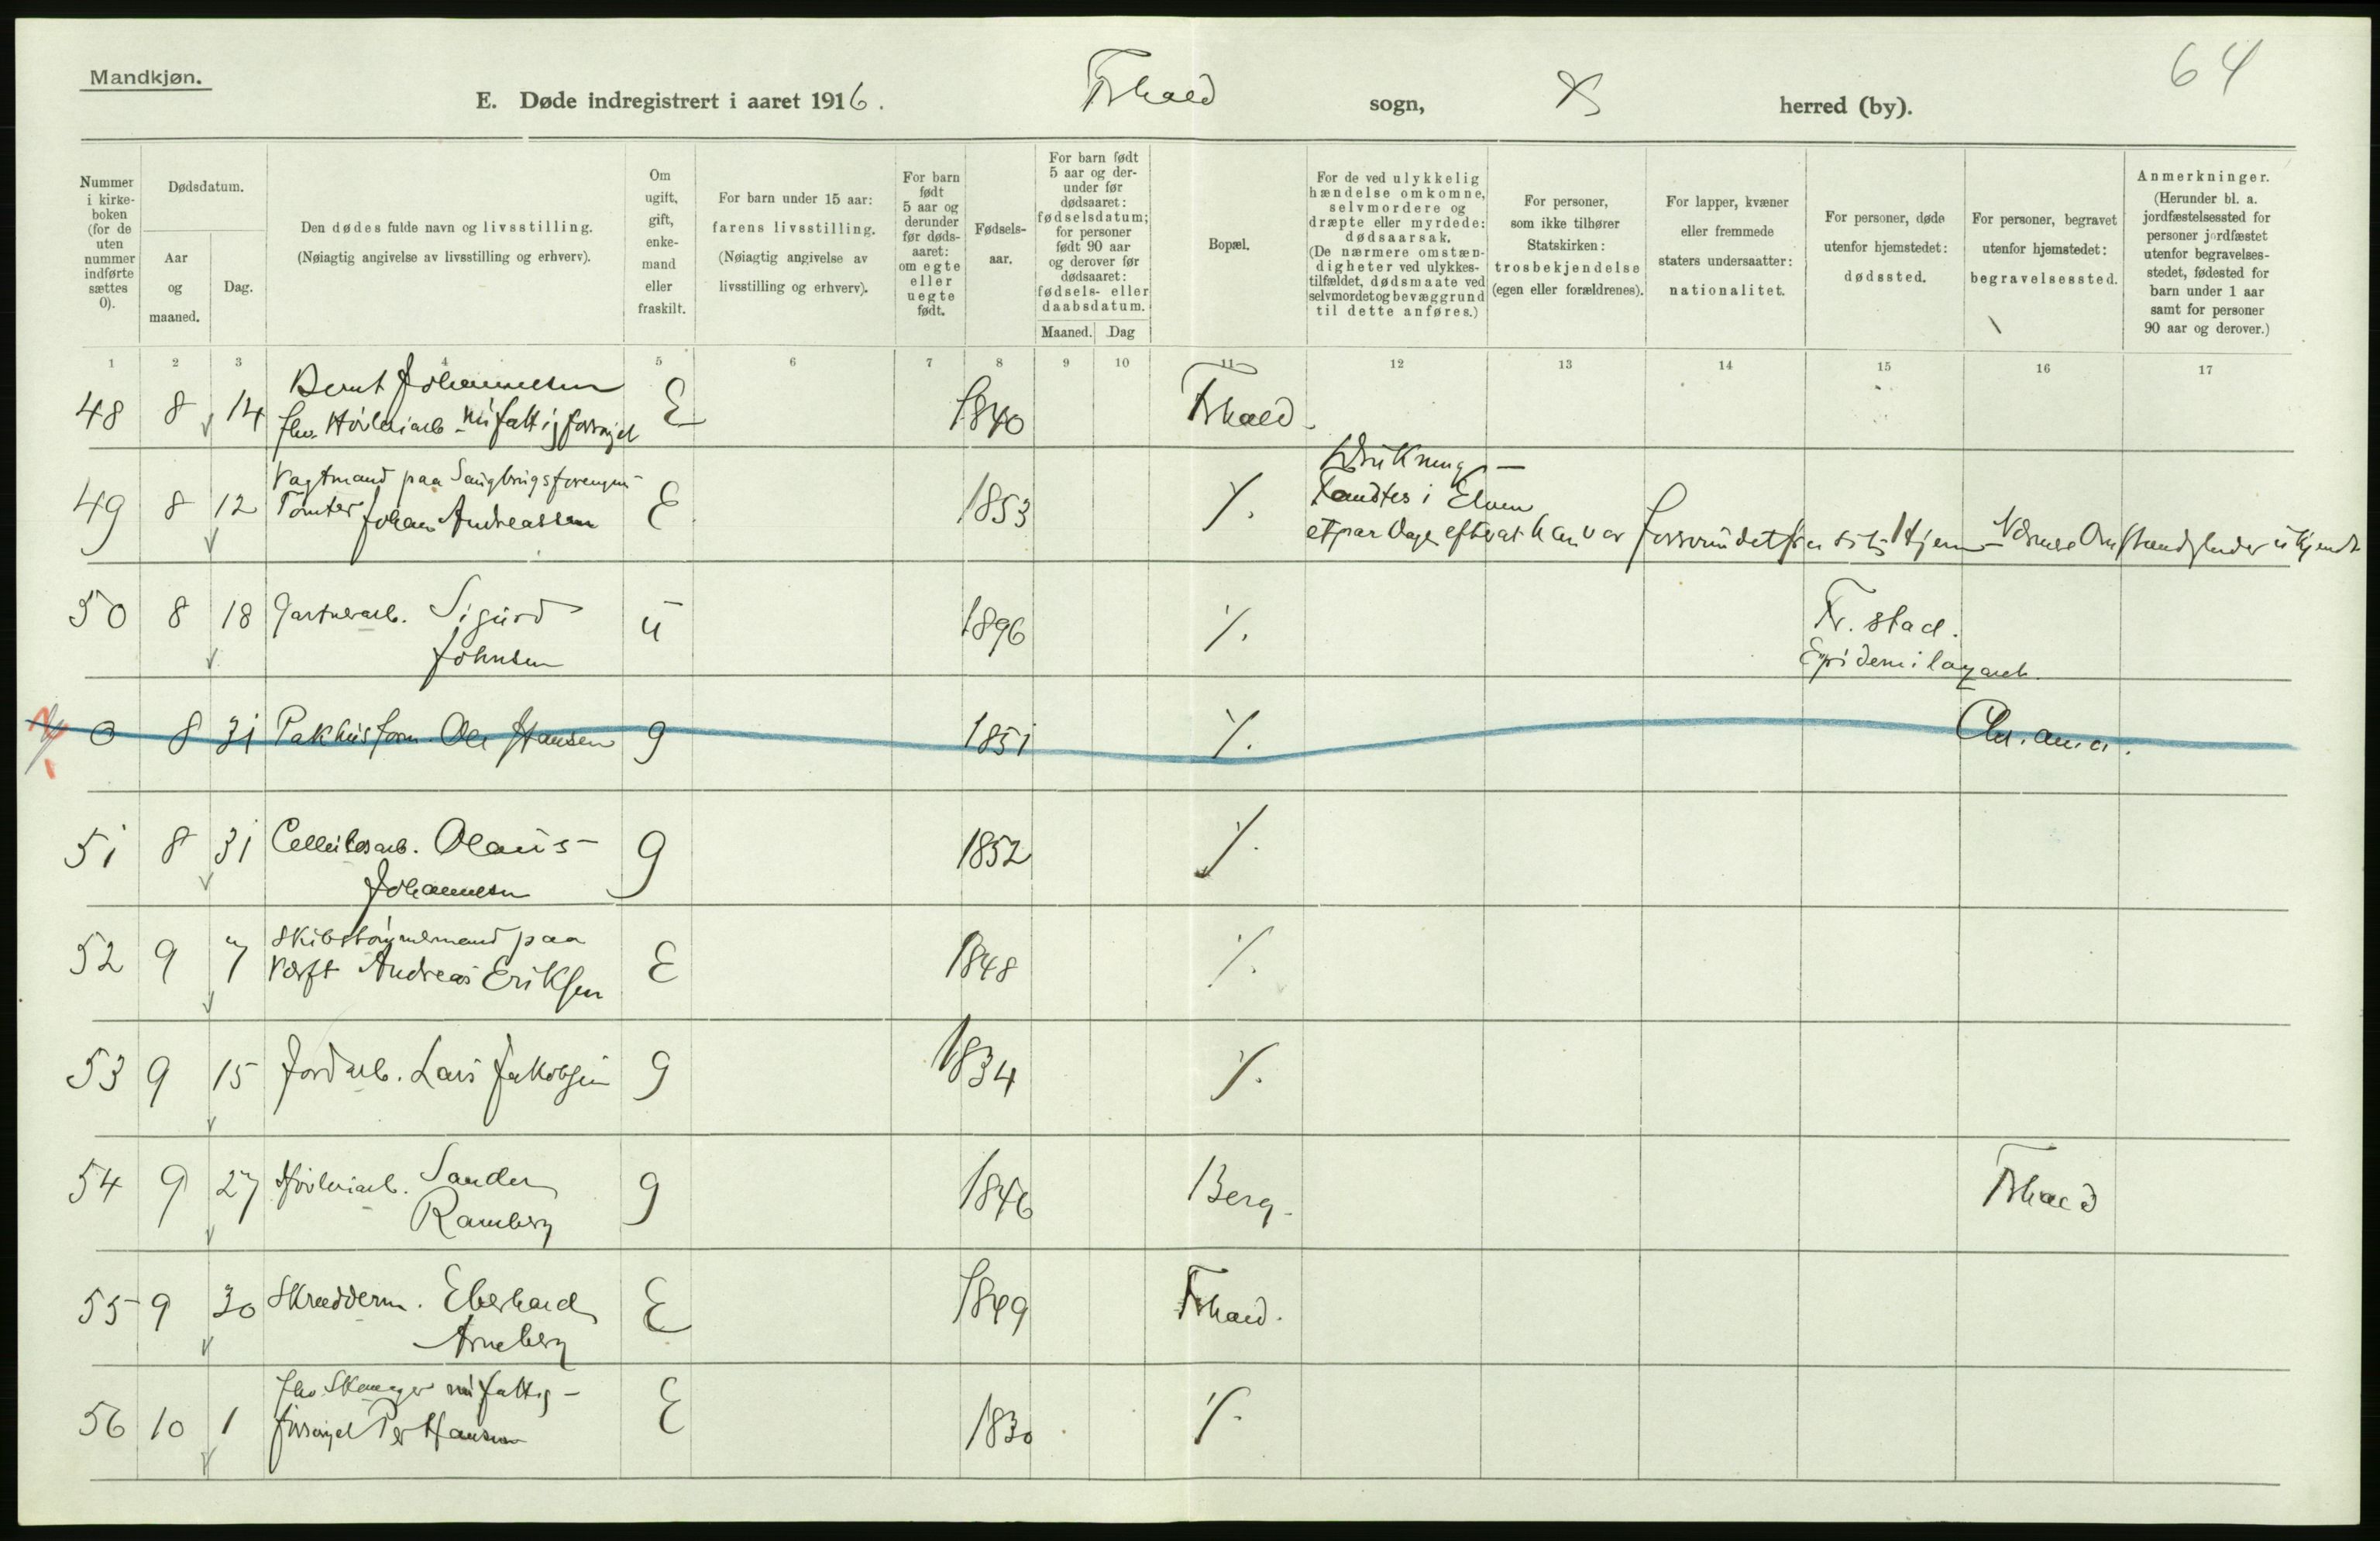 Mandkjøn.
64
E. Døde indregistrert i aaret 1916. Frhald sogn, herred (by).
Nummer i kirke-boken (for de uten nummer indførte sættes 0).
Dødsdatum.
Aar og maaned.
Dag.
Den dødes fulde navn og livsstilling. (Nøiagtig angivelse av livsstilling og erhverv).
Om ugift, gift, enke-mand eller fraskilt.
For barn under 15 aar: farens livsstilling. (Nøiagtig angivelse av livsstilling og erhverv).
For barn født 5 aar og derunder før døds-aaret: om egte eller uegte født.
Fødsels-aar.
For barn født 5 aar og der-under før dødsaaret: fødselsdatum; for personer født 90 aar og derover før dødsaaret: fødsels- eller daabsdatum.
Maaned. Dag
Bopæl.
For de ved ulykkelig hændelse omkomne, selvmordere og dræpte eller myrdede: dødsaarsak. (De nærmere omstæn-digheter ved ulykkes-tilfældet, dødsmaate ved selvmordet og bevæggrund til dette anføres.)
For personer, som ikke tilhører Statskirken: trosbekjendelse (egen eller forældrenes).
For lapper, kvæner eller fremmede staters undersaatter: nationalitet.
For personer, døde utenfor hjemstedet: dødssted.
For personer, begravet utenfor hjemstedet: begravelsessted.
Anmerkninger. (Herunder bl. a. jordfæstelsessted for personer jordfæstet utenfor begravelses-stedet, fødested for barn under 1 aar samt for personer 90 aar og derover.)
1 2 3 4 5 6 7 8 9 10 11 12 13 14 15 16 17
Bernt Johannesen
48 8 14 fhv. Høvleriarb. nu fattigforsørget E 1840 Frhald
Vagtmand paa Saugbrugsforengens Drukning -
49 8 12 Tomter Johan Andreassen E 1853 ٪ Fandtes i Elven
et par Dage efterat han var forsvundet fra sit Hjem - Nærmere Omstændigheder ukjendt
50 8 18 Gartnerarb. Sigurd Johnsen u 1896 ٪ Fr. stad. Epidemilazareth.
0 8 31 Pakhusform. Ole Hansen g 1851 ٪ Chr.ania.
51 8 31 Cellulosarb. Olaus Johannesen g 1852 ٪
52 9 7 Skibstømmermand paa Værft Andreas Eriksen E 1848 ٪
53 9 15 Jordarb. Lars Jakobsen g 1834 ٪
54 9 27 Høvleriarb. Sander Ramberg g 1846 Berg - Frhald
55 9 30 Skrædderm. Eberhard Arneberg E 1849 Frhald.
56 10 1 fhv. nu fattig-forsørget Per Hansen E 1830 ٪